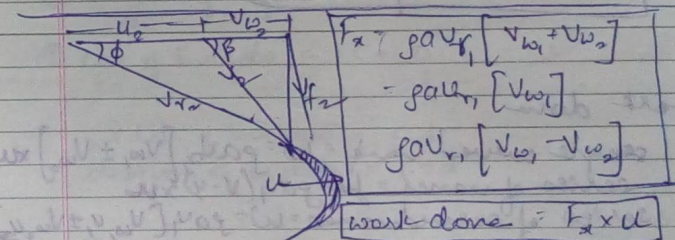 u₂ V_w₂
φ β
V_r₂ V₂ V_f₂
u
F_x = ρaV_r₁ [V_w₁ + V_w₂]
= ρaV_r₁ [V_w₁]
ρaV_r₁ [V_w₁ - V_w₂]
work done = F_x × u